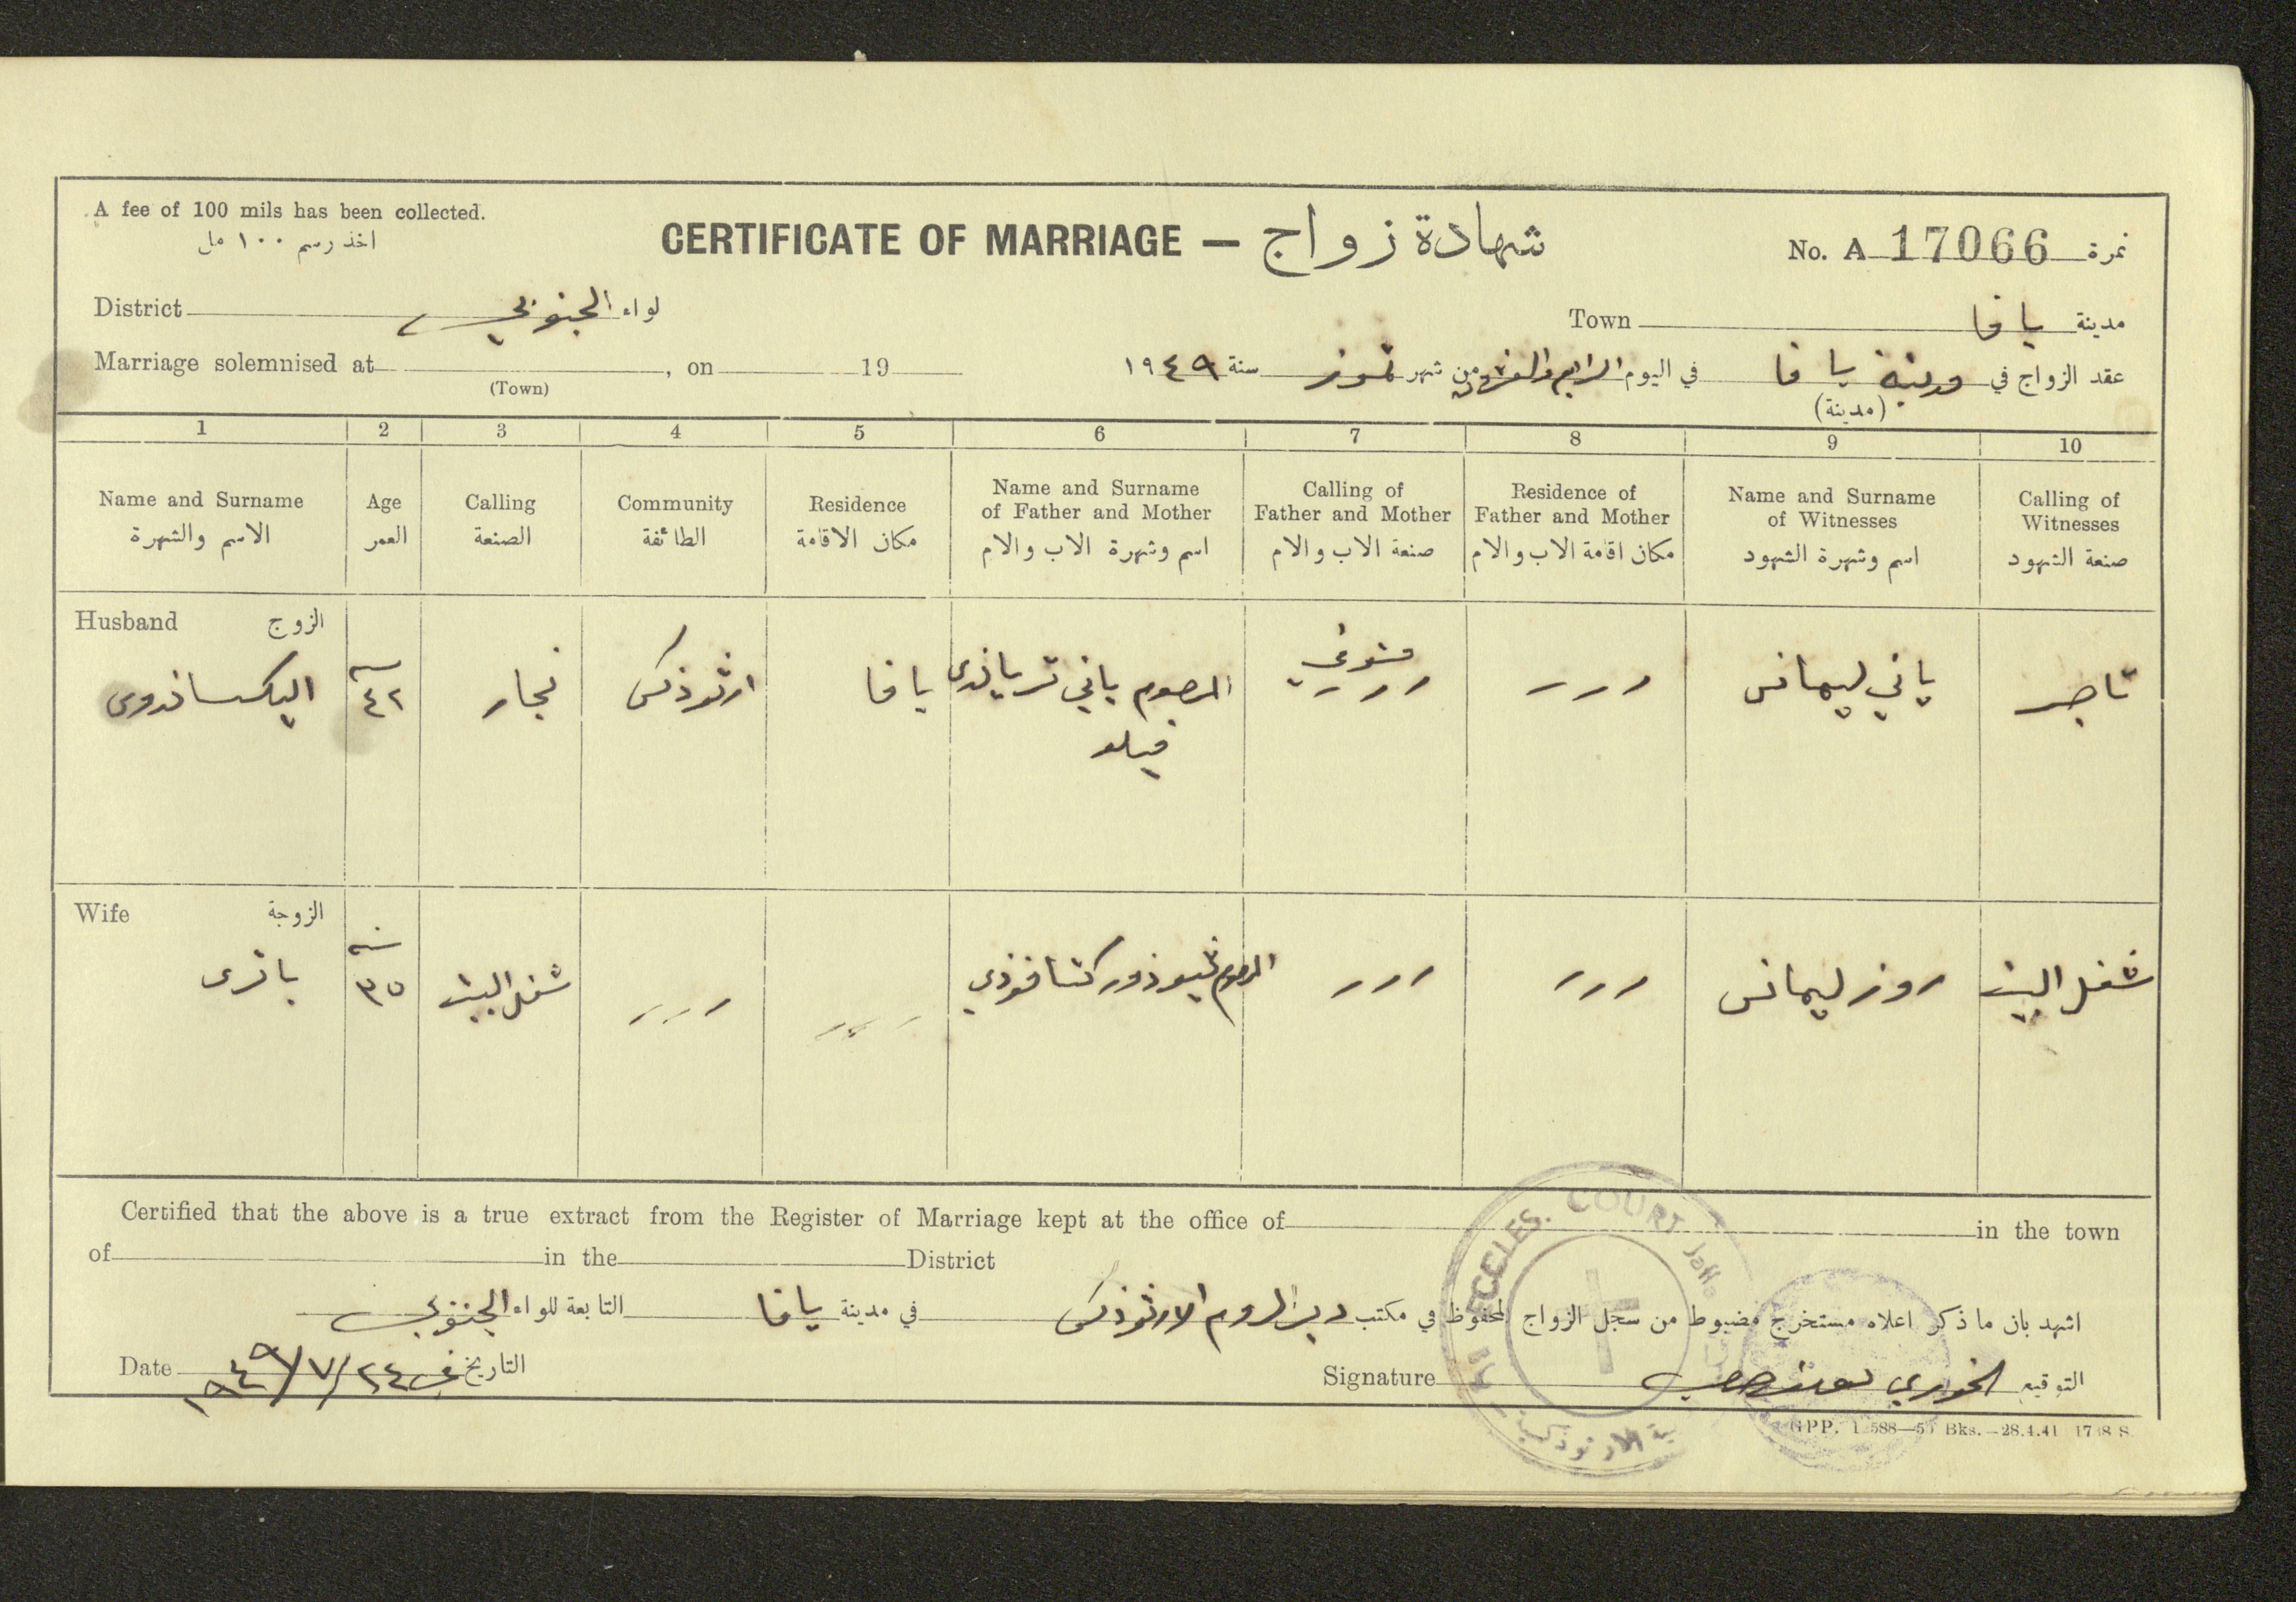 A fee of 100 mils has been collected.
اخذ رسم ١٠٠ مل
CERTIFICATE OF MARRIAGE — شهادة زواج
No. A 17066 نمرة
District لواء الجنوبي
Town مدينة يافا
Marriage solemnised at , on 19
(Town)
عقد الزواج في مدينة يافا في اليوم الرابع والعشرون من شهر تموز سنة ١٩٤٩
(مدينة)
1 2 3 4 5 6 7 8 9 10
Name and Surname الاسم والشهرة
Age العمر
Calling الصنعة
Community الطائفة
Residence مكان الاقامة
Name and Surname of Father and Mother اسم وشهرة الاب والام
Calling of Father and Mother صنعة الاب والام
Residence of Father and Mother مكان اقامة الاب والام
Name and Surname of Witnesses اسم وشهرة الشهود
Calling of Witnesses صنعة الشهود
Husband الزوج
اليكساندروس
سنة ٤٢
نجار
ارثوذكس
يافا
المرحوم ياني
متوفي
ياني ليماناس
تاجر
Wife الزوجة
سنة ٣٥
شغل البيت
المرحوم ثيوذور
روز ليماناس
شغل البيت
Certified that the above is a true extract from the Register of Marriage kept at the office of in the town
of in the District
اشهد بان ما ذكر اعلاه مستخرج مضبوط من سجل الزواج المحفوظ في مكتب دير الروم الارثوذكس في مدينة يافا التابعة للواء الجنوبي
Date التاريخ في ٢٤/٧/١٩٤٩
Signature التوقيع الخوري
ECCLES. COURT Jaffa
الارثوذكسية
GPP. 1588—50 Bks.—28.4.41